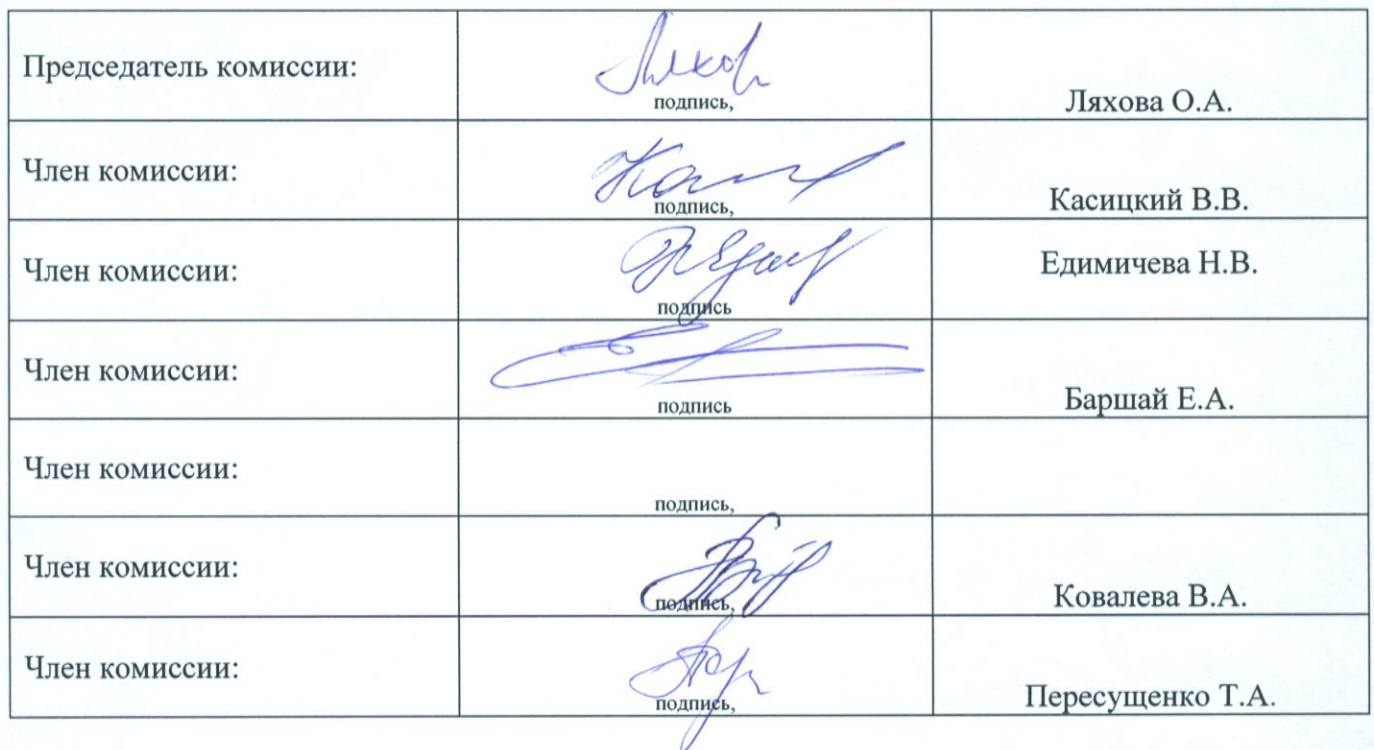 Председатель комиссии:
подпись,
Ляхова О.А.
Член комиссии:
подпись,
Касицкий В.В.
Член комиссии:
подпись
Едимичева Н.В.
Член комиссии:
подпись
Баршай Е.А.
Член комиссии:
подпись,
Член комиссии:
подпись,
Ковалева В.А.
Член комиссии:
подпись,
Пересущенко Т.А.